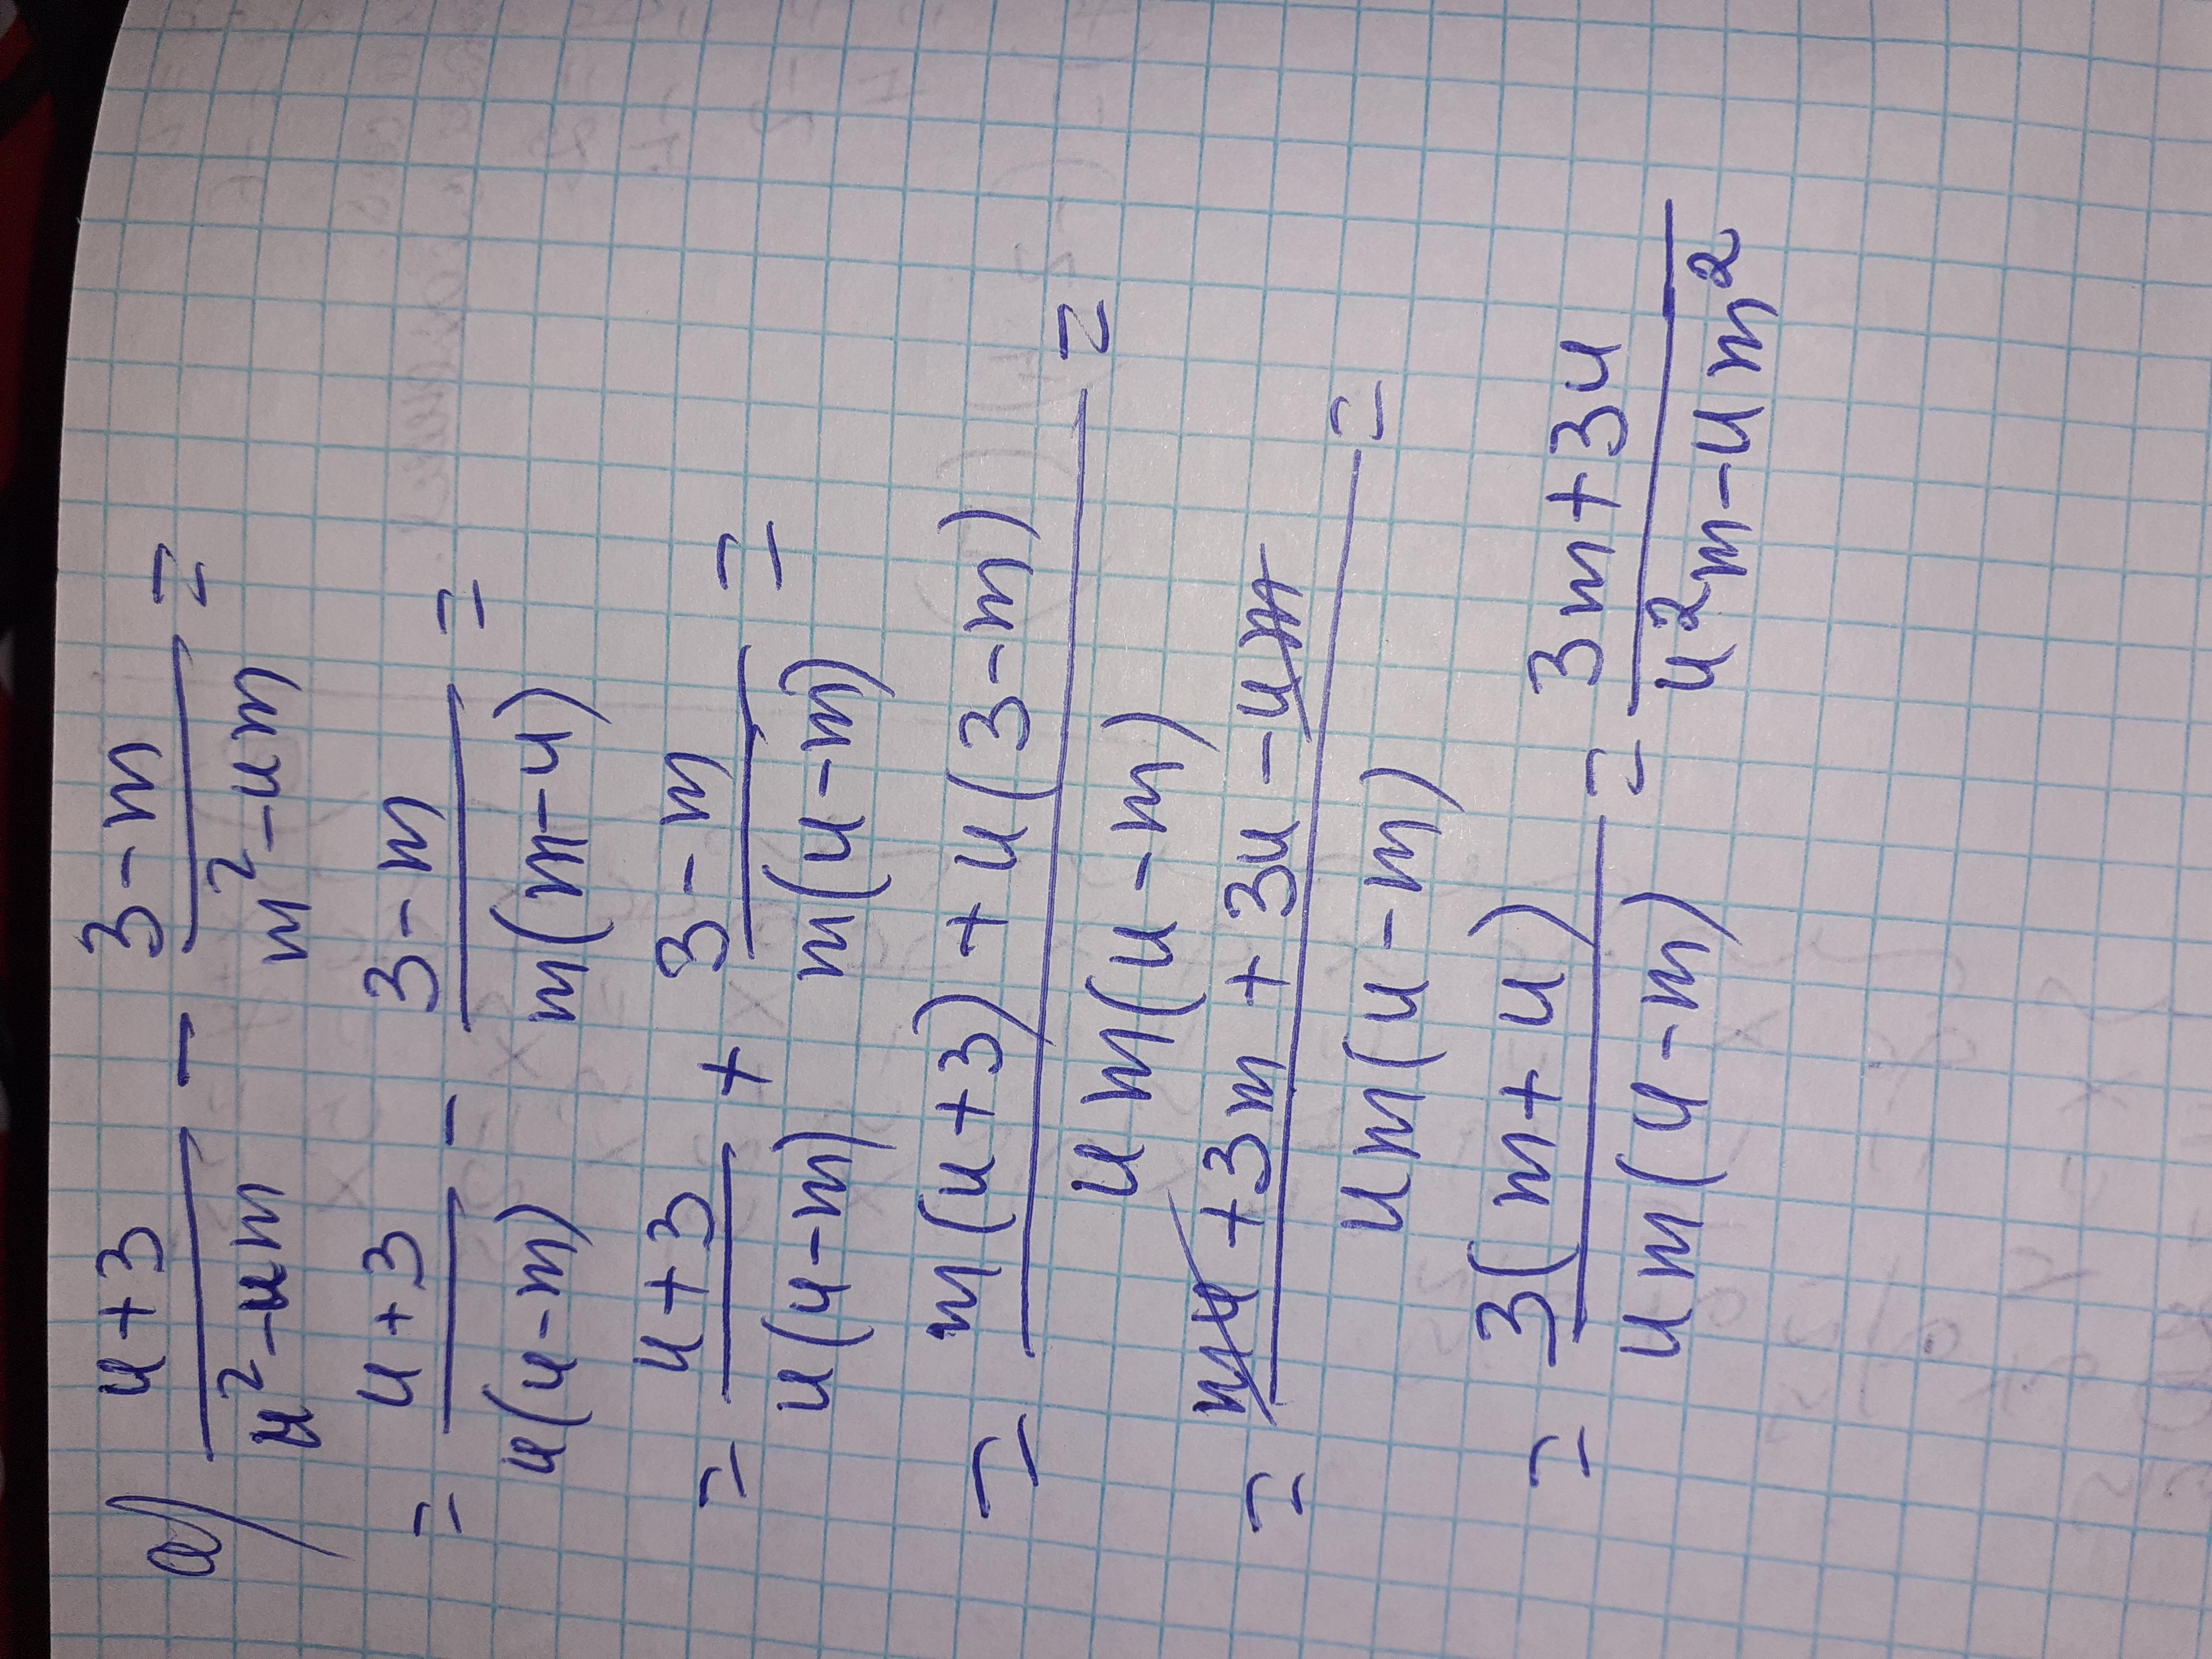 а) (u+3)/(u²-um) - (3-m)/(m²-um) =
= (u+3)/(u(u-m)) - (3-m)/(m(m-u)) =
= (u+3)/(u(u-m)) + (3-m)/(m(u-m)) =
= (m(u+3)+u(3-m))/(um(u-m)) =
= (mu+3m+3u-um)/(um(u-m)) =
= (3(m+u))/(um(u-m)) = (3m+3u)/(u²m-um²)